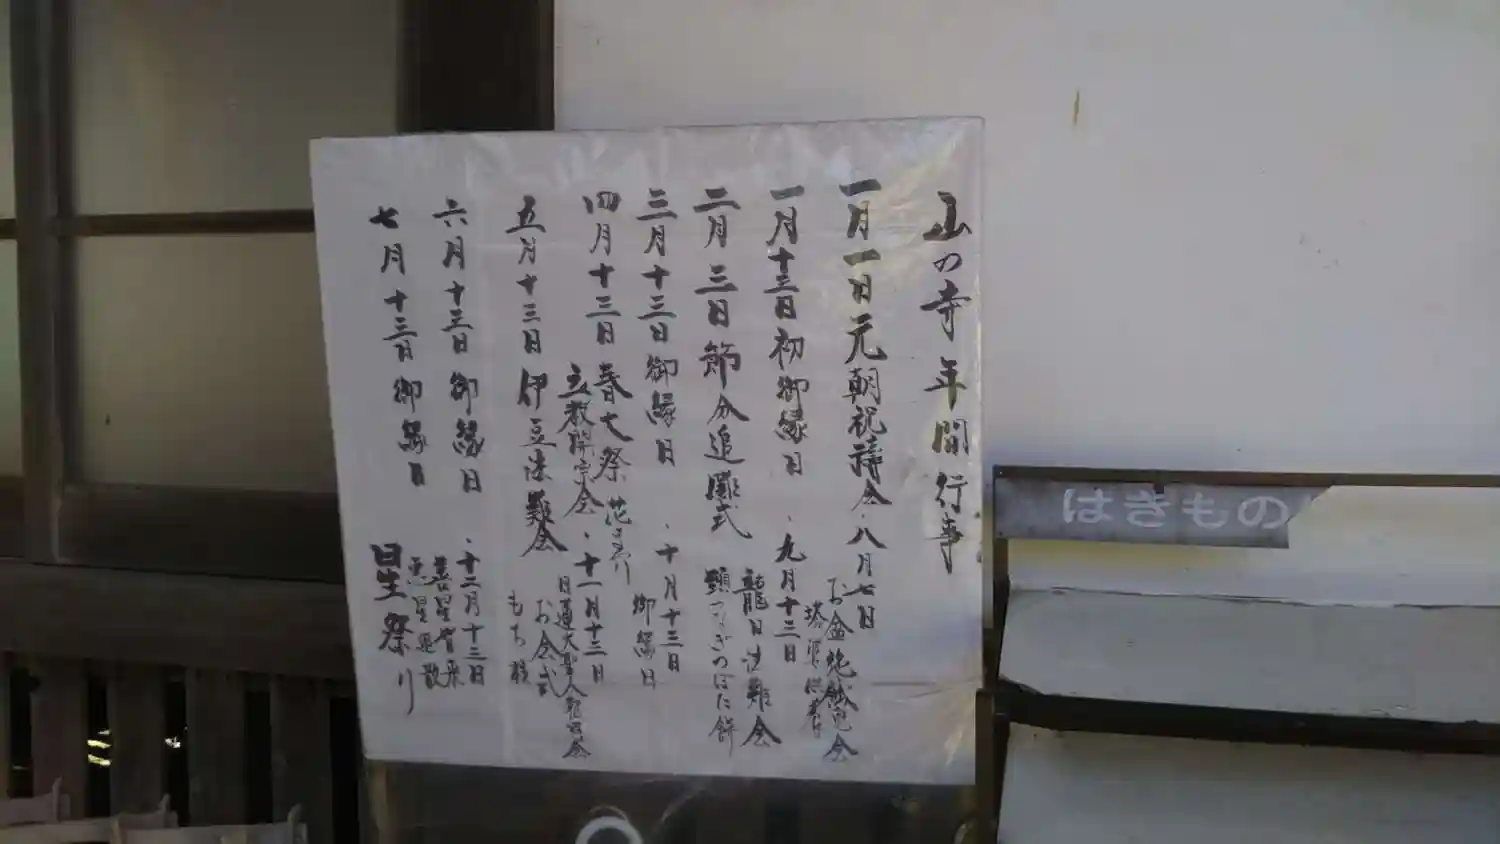 山の寺年間行事
一月一日元朝祝祷会・八月七日
お盆施餓鬼会
塔婆供養
一月十三日初御縁日・九月十三日
龍口法難会
頸つなぎのぼた餅
二月三日節分追儺式
三月十三日御縁日・十月十三日
御縁日
四月十三日春大祭花まつり
立教開宗会・十一月十三日
日蓮大聖人
お会式
もち投
五月十三日伊豆法難会
六月十三日御縁日・十二月十三日
善星皆来
悪星退散
星祭り
七月十三日御縁日
はきもの